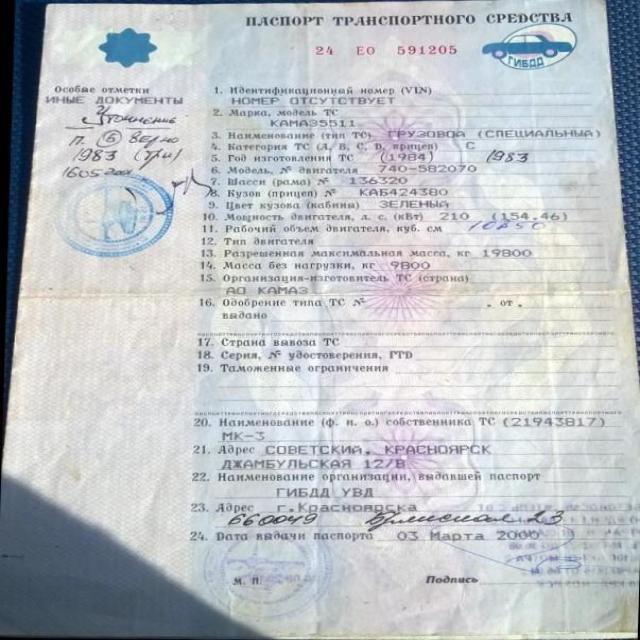 ПАСПОРТ ТРАНСПОРТНОГО СРЕДСТВА
24 ЕО 591205
ГИБДД
Особые отметки
ИНЫЕ ДОКУМЕНТЫ
Уточнение
п. 5 верно
1983 (три)
1605
1. Идентификационный номер (VIN)
НОМЕР ОТСУТСТВУЕТ
2. Марка, модель ТС
КАМАЗ5511
3. Наименование (тип ТС) ГРУЗОВОЙ (СПЕЦИАЛЬНЫЙ)
4. Категория ТС (А, В, С, D, прицеп) С
5. Год изготовления ТС (1984) 1983
6. Модель, № двигателя 740-582070
7. Шасси (рама) № 136320
8. Кузов (прицеп) № КАБ424380
9. Цвет кузова (кабины) ЗЕЛЕНЫЙ
10. Мощность двигателя, л. с. (кВт) 210 (154.46)
11. Рабочий объем двигателя, куб. см 10850
12. Тип двигателя
13. Разрешенная максимальная масса, кг 19800
14. Масса без нагрузки, кг 9800
15. Организация-изготовитель ТС (страна)
АО КАМАЗ
16. Одобрение типа ТС № . от .
выдано
17. Страна вывоза ТС
18. Серия, № удостоверения, ГТД
19. Таможенные ограничения
20. Наименование (ф. и. о.) собственника ТС (21943817)
МК-3
21. Адрес СОВЕТСКИЙ, КРАСНОЯРСК
ДЖАМБУЛЬСКАЯ 12/В
22. Наименование организации, выдавшей паспорт
ГИБДД УВД
23. Адрес г.Красноярска
660049
24. Дата выдачи паспорта 03 Марта 2000
М. П. Подпись